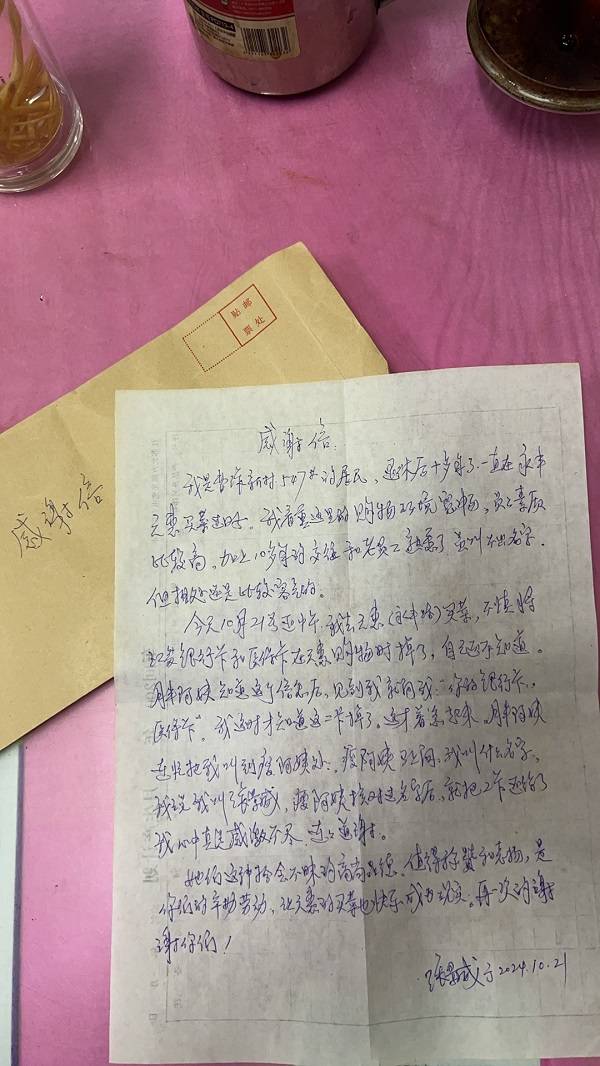 邮
贴
处
票
感谢信
感谢信
我是曹杨新村547#的居民，退休后十多年了一直在永丰
元惠买菜过日子。我看重这里的购物环境宽畅，员工素质
比较高，加上10多年的交往和老员工熟悉了虽叫不出名字，
但相处还是比较客气的。
今天10月21号近中午，我去元惠（永丰路）买菜，不慎将
工资银行卡和医保卡在元惠购物时掉了，自己还不知道。
周丰阿姨知道这个信息后，见到我就问我"你的银行卡，
医保卡"。我这时才知道这二卡掉了。这才着急起来，周丰阿姨
连忙把我叫到瘦阿姨处。瘦阿姨马上问，我叫什么名字，
我说我叫张景威，瘦阿姨核对过名字后，就把2卡还给了
我心中真是感激不尽，连连道谢。
她们这种拾金不昧的高尚品德，值得称赞和表扬，是
你们的辛勤劳动，让元惠的买菜也快乐成为现实。再一次的谢
谢你们！
张景威于2024.10.21